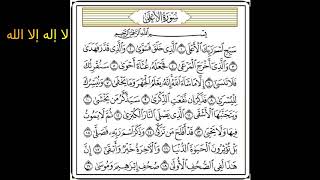 سُورَةُ الأَعْلَىٰ
بِسْمِ اللَّهِ الرَّحْمَٰنِ الرَّحِيمِ
لا إله إلا الله
سَبِّحِ اسْمَ رَبِّكَ الْأَعْلَى ۝ الَّذِي خَلَقَ فَسَوَّىٰ ۝ وَالَّذِي قَدَّرَ فَهَدَىٰ ۝
وَالَّذِي أَخْرَجَ الْمَرْعَىٰ ۝ فَجَعَلَهُ غُثَاءً أَحْوَىٰ ۝ سَنُقْرِئُكَ
فَلَا تَنسَىٰ ۝ إِلَّا مَا شَاءَ اللَّهُ إِنَّهُ يَعْلَمُ الْجَهْرَ وَمَا يَخْفَىٰ ۝ وَنُيَسِّرُكَ
لِلْيُسْرَىٰ ۝ فَذَكِّرْ إِن نَّفَعَتِ الذِّكْرَىٰ ۝ سَيَذَّكَّرُ مَن يَخْشَىٰ ۝
وَيَتَجَنَّبُهَا الْأَشْقَى ۝ الَّذِي يَصْلَى النَّارَ الْكُبْرَىٰ ۝ ثُمَّ لَا يَمُوتُ
فِيهَا وَلَا يَحْيَىٰ ۝ قَدْ أَفْلَحَ مَن تَزَكَّىٰ ۝ وَذَكَرَ اسْمَ رَبِّهِ فَصَلَّىٰ ۝
بَلْ تُؤْثِرُونَ الْحَيَوٰةَ الدُّنْيَا ۝ وَالْآخِرَةُ خَيْرٌ وَأَبْقَىٰ ۝ إِنَّ
هَٰذَا لَفِي الصُّحُفِ الْأُولَىٰ ۝ صُحُفِ إِبْرَٰهِيمَ وَمُوسَىٰ ۝